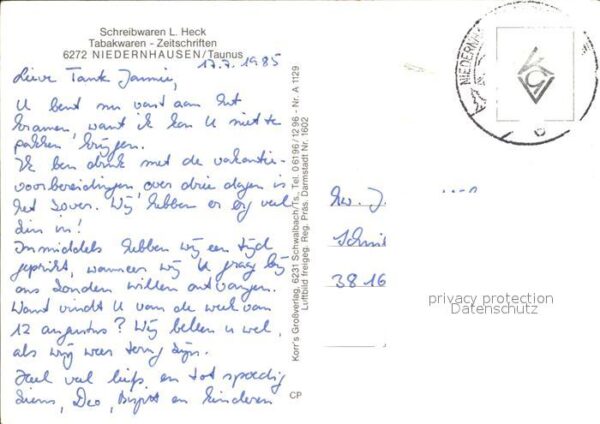 Schreibwaren L. Heck
Tabakwaren - Zeitschriften
6272 NIEDERNHAUSEN/Taunus
17.7.1985
Lieve Tante Jannie,
U bent nu vast aan het
kramen, want ik kan U niet te
pakken krijgen.
Ik ben druk met de vakantie-
voorbereidingen, over drie dagen is
het zover. Wij hebben er erg veel
zin in!
Inmiddels hebben wij een tijd
geprikt, wanneer wij U graag bij
ons zouden willen ontvangen.
Wat vindt U van de week van
12 augustus? Wij bellen U wel,
als wij weer terug zijn.
Heel veel liefs en tot spoedig
Ziens, en kinderen
CP
Korr's Großverlag, 6231 Schwalbach/Ts., Tel. 0 61 96 / 12 96 - Nr. A 1129
Luftbild freigeg. Reg. Präs. Darmstadt Nr. 1602
NIEDERNH
J.
Schmit
3816
privacy protection
Datenschutz